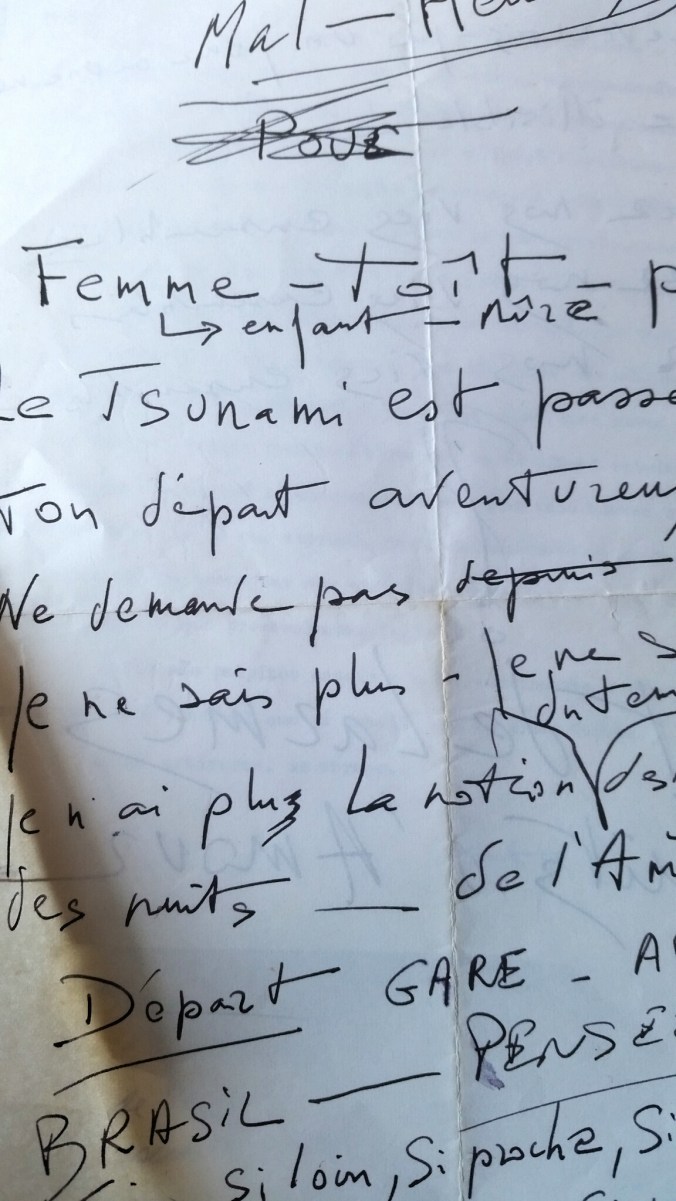 Mal —
Pour
Femme — Toît — p
↳ enfant — mûre
Le Tsunami est passé
Ton départ aventureu
Ne demande pas depuis
Je ne sais plus - Je ne s
du tem
Je n'ai plus La notion des
des nuits — de l'Am
Départ GARE - A
BRASIL — PENSÉ
Si loin, Si proche, Si